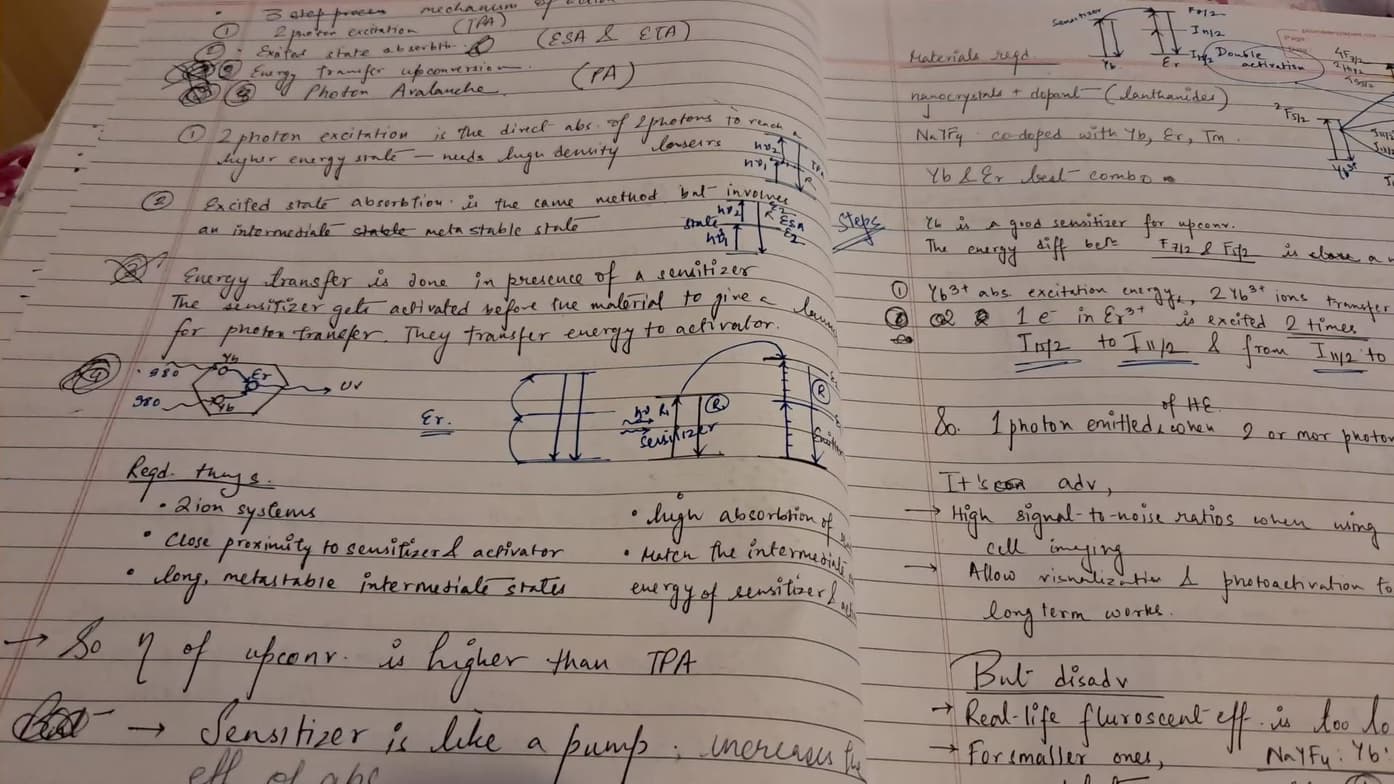 3 step process mechanism of action
① 2 photon excitation (TPA)
② Exited state absorbtn (ESA & ETA)
③ Energy transfer upconversion
④ Photon Avalanche (PA)
① 2 photon excitation is the direct abs. of 2 photons to reach a
higher energy state – needs high density
hν2
hν1
R
② Excited state absorbtion is the same method but involves
an intermediate meta stable state
state
hν2
hν1
ESA
E2
Energy transfer is done in presence of a sensitizer
The sensitizer gets activated before the material to give a
for photon transfer. They transfer energy to activator.
④ 980 Yb Er UV
980 Yb
Er.
hν R
Sensitizer
R
Reqd. things.
• 2 ion systems
• Close proximity to sensitizer & activator
• long, metastable intermediate states
• high absorbtion of
• Match the intermediate
energy of sensitizer &
→ So η of upconv. is higher than TPA
→ Sensitizer is like a pump; increases the
eff of abs
Sensitizer
Yb
F7/2
I11/2
I15/2
Er
Double
activation
4F7/2
2F5/2
Yb3+
Materials reqd
nanocrystals + dopant (lanthanides)
NaYF4 co-doped with Yb, Er, Tm.
Yb & Er best combo
Steps
Yb is a good sensitizer for upconv.
The energy diff betn F7/2 & F5/2 is close
① Yb3+ abs excitation energy, 2 Yb3+ ions transfer
1 e- in Er3+ is excited 2 times
I15/2 to I11/2 & from I11/2 to
of HE.
So. 1 photon emitted, when 2 or mor photon
It's adv,
→ High signal-to-noise ratios when using
cell imaging
→ Allow visualization & photoactivation to
long term works.
But disadv
→ Real-life fluroscent eff. is too lo
→ For smaller ones, NaYF4: Yb